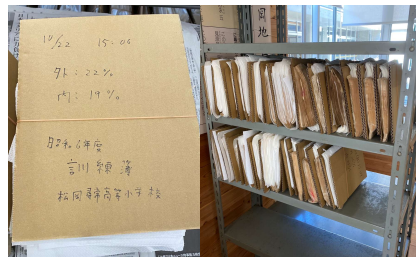 10/22 15:06
外:22%
内:19%
昭和6年度
訓練簿
松岡尋常高等小学校
岡地